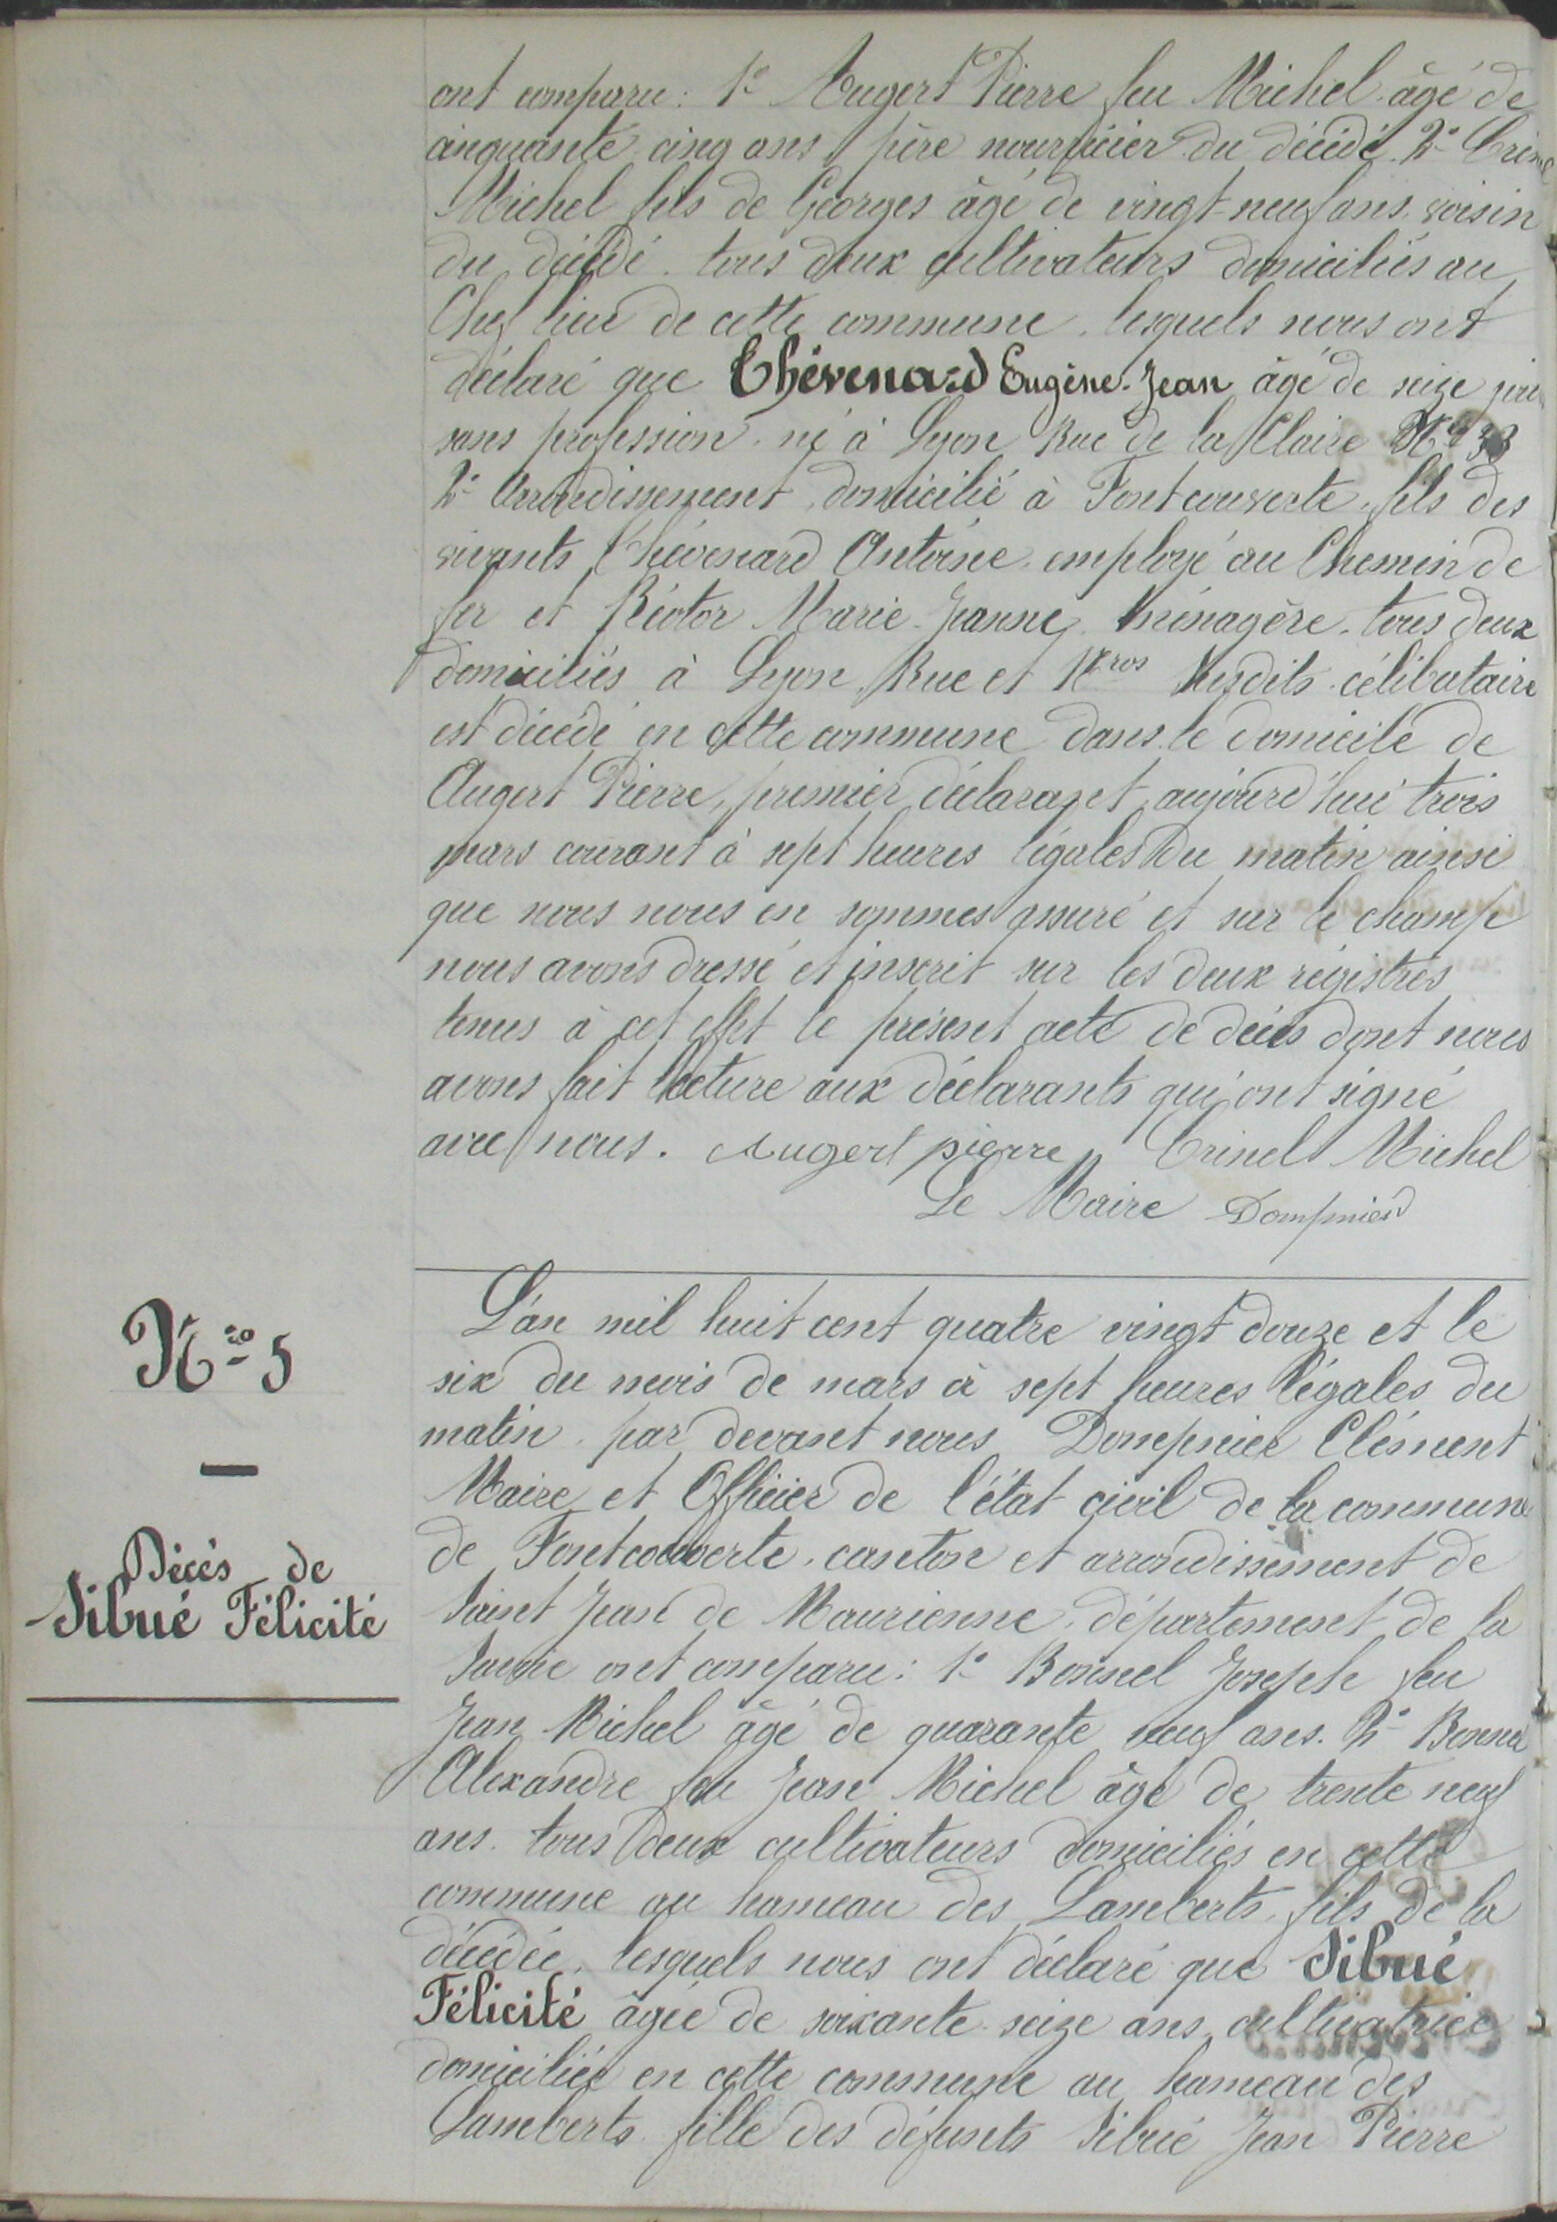 ont comparu: 1° Augert Pierre feu Michel âgé de
cinquante cinq ans père nourricier du décédé 2° Crinel
Michel fils de Georges âgé de vingt-neuf ans, voisin
du décédé. tous deux cultivateurs domiciliés au
Chef lieu de cette commune, lesquels nous ont
déclaré que Thévenard Eugène-Jean âgé de seize jours
sans profession, né à Lyon Rue de la Claire N° 33
2° Arrondissement, domicilié à Fontcouverte, fils des
vivants Thévenard Antoine, employé au Chemin de
fer et Riotor Marie-Jeanne, ménagère, tous deux
domiciliés à Lyon, Rue et Nros susdits, célibataire
est décédé en cette commune dans le domicile de
Augert Pierre, premier déclarant, aujourd'hui trois
mars courant à sept heures légales du matin ainsi
que nous nous en sommes assuré et sur le champ
nous avons dressé et inscrit sur les deux régistres
tenus à cet effet le présent acte de décès dont nous
avons fait lecture aux déclarants qui ont signé
avec nous. Augert pierre Crinel Michel
Le Maire Dompnier
N.ro 5
Décès de
Sibué Félicité
L'an mil huit cent quatre vingt douze et le
six du mois de mars à sept heures légales du
matin, par devant nous Dompnier Clément
Maire et Officier de l'état civil de la commune
de Fontcouverte, canton et arrondissement de
Saint Jean de Maurienne, département de la
Savoie ont comparu: 1° Bonnel Joseph feu
Jean Michel âgé de quarante neuf ans. 2° Bonnel
Alexandre feu Jean Michel âgé de trente neuf
ans. tous deux cultivateurs domiciliés en cette
commune au hameau des Lamberts, fils de la
décédée, lesquels nous ont déclaré que Sibué
Félicité âgée de soixante-seize ans, cultivatrice
domiciliée en cette commune au hameau des
Lamberts, fille des défunts Sibué Jean Pierre